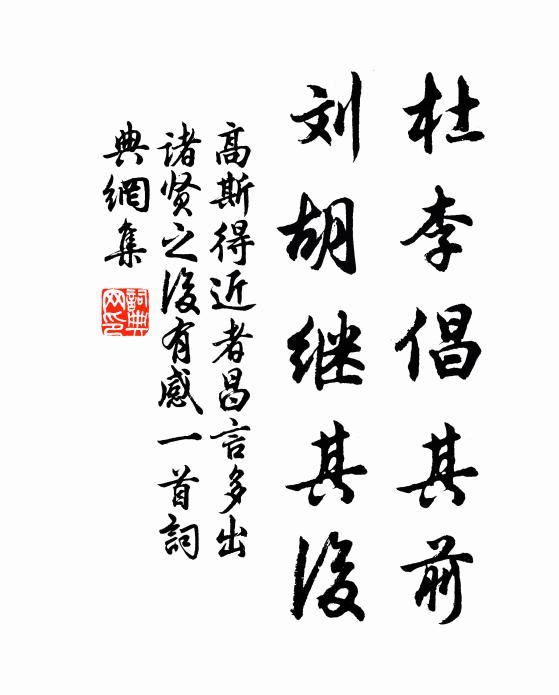 杜李倡其前
刘胡继其後
高斯得近者昌言多出
诸贤之後有感一首詞
典網集
詞典
网印